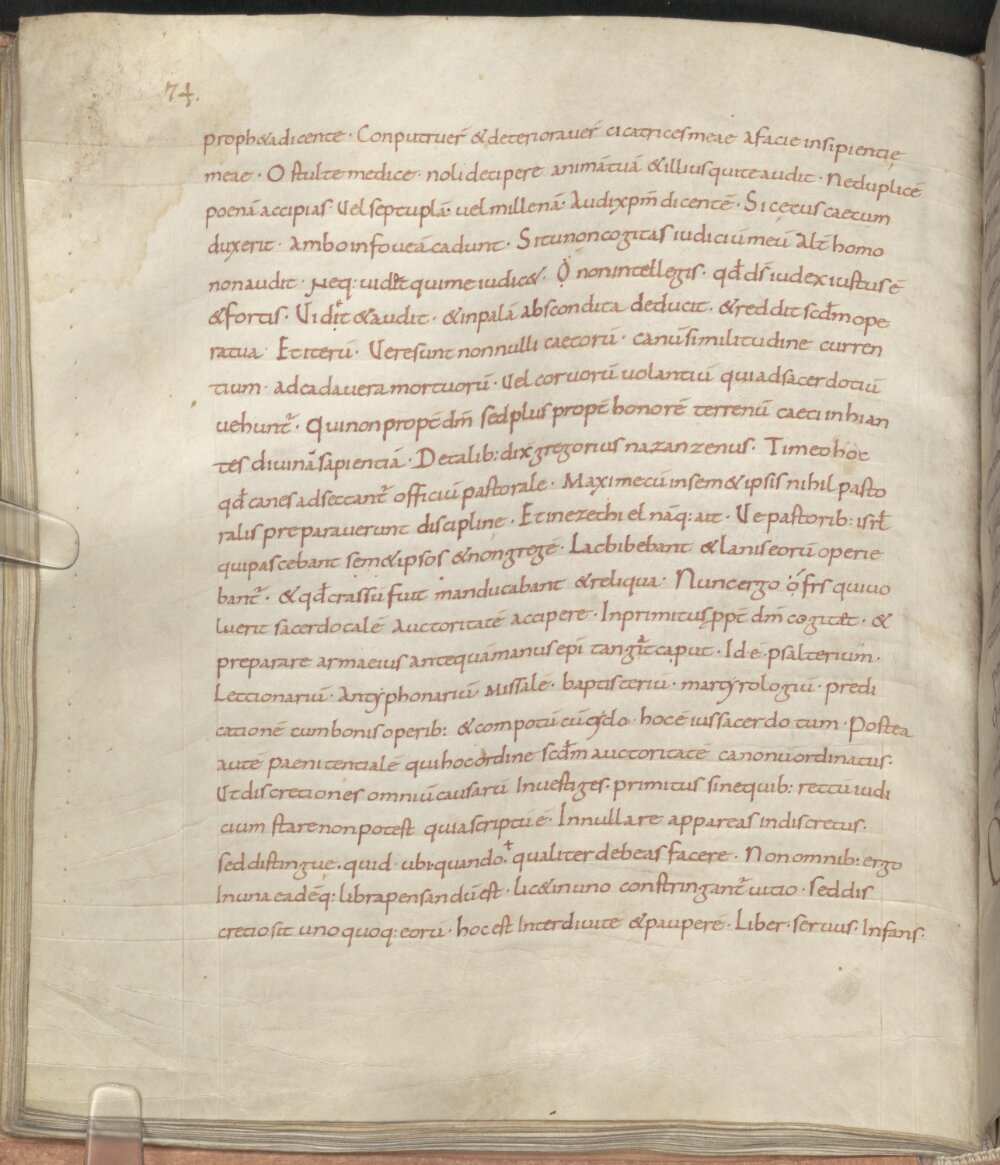 74.
proph&adicente · Conputruer̄ &deteriorauer̄ cicatricesmeae afacie insipientię
meae · O stulte medice · noli decipere animātuā &illius quite audit · Neduplicē
poenā accipias · Uel septuplā uel millenā · Audi xp̄m dicentē · Si cecus caecum
duxerit · Ambo infoueā cadunt · Si tu non cogitas iudiciū meū Alt̄ homo
non audit · Neq: uidet qui me iudic& · Ǫ non intellegis · qd̄ ds̄ iudex iustus ē
&fortis · Uidit &audit · &inpalā abscondita deducit · &reddit scd̄m ope
ra tua · Et iterū · Uere sunt nonnulli caecorū · canū similitudine curren
tium · ad cadauera mortuorū · Uel coruorū uolantiū qui ad sacerdotiū
uehunt̄ · Qui non propt̄ dm̄ sed plus propt̄ honorē terrenū caeci inhian
tes diuinā sapientiā · De talib: dix̄ gregorius nazanzenus · Timeo hoc
qd̄ canes adsectant̄ officiū pastorale · Maxime cū in sem&ipsis nihil pasto
ralis preparauerunt discipline · Et in ezechiel nāq: ait · Ue pastorib: isrl̄
qui pascebant sem&ipsos &non gregē · Lac bibebant &lanis eorū operie
bant̄ · &qd̄ crassū fuit manducabant &reliqua · Nunc ergo ǫ frs̄ qui uo
luerit sacerdocalē auctoritatē accipere · Inprimitus ppt̄ dm̄ cogitet · &
preparare arma eius antequā manus ep̄i tangat caput · Id ē · psalterium ·
Lectionariū · Antyphonariū Missalē · baptisteriū · martyrologiū · predi
cationē cum bonis operib: &compotū cū cyclo · hoc ē ius sacerdotum · Postea
autē paenitentialē qui hoc ordine scd̄m auctoritatē canonū ordinatus ·
Ut discretiones omniū causarū Inuestiges · primitus sine quib: rectū iudi
cium stare non potest quia scriptū ē · In nulla re appareas indiscretus ·
sed distingue · quid · ubi · quando · qualiter debeas facere · Non omnib: ergo
In una eadēq: libra pensandū est · lic& in uno constringant̄ uitio · sed dis
cretio sit uno quoq: eorū · hoc est Inter diuite &pauperē · Liber · seruus · Infans ·